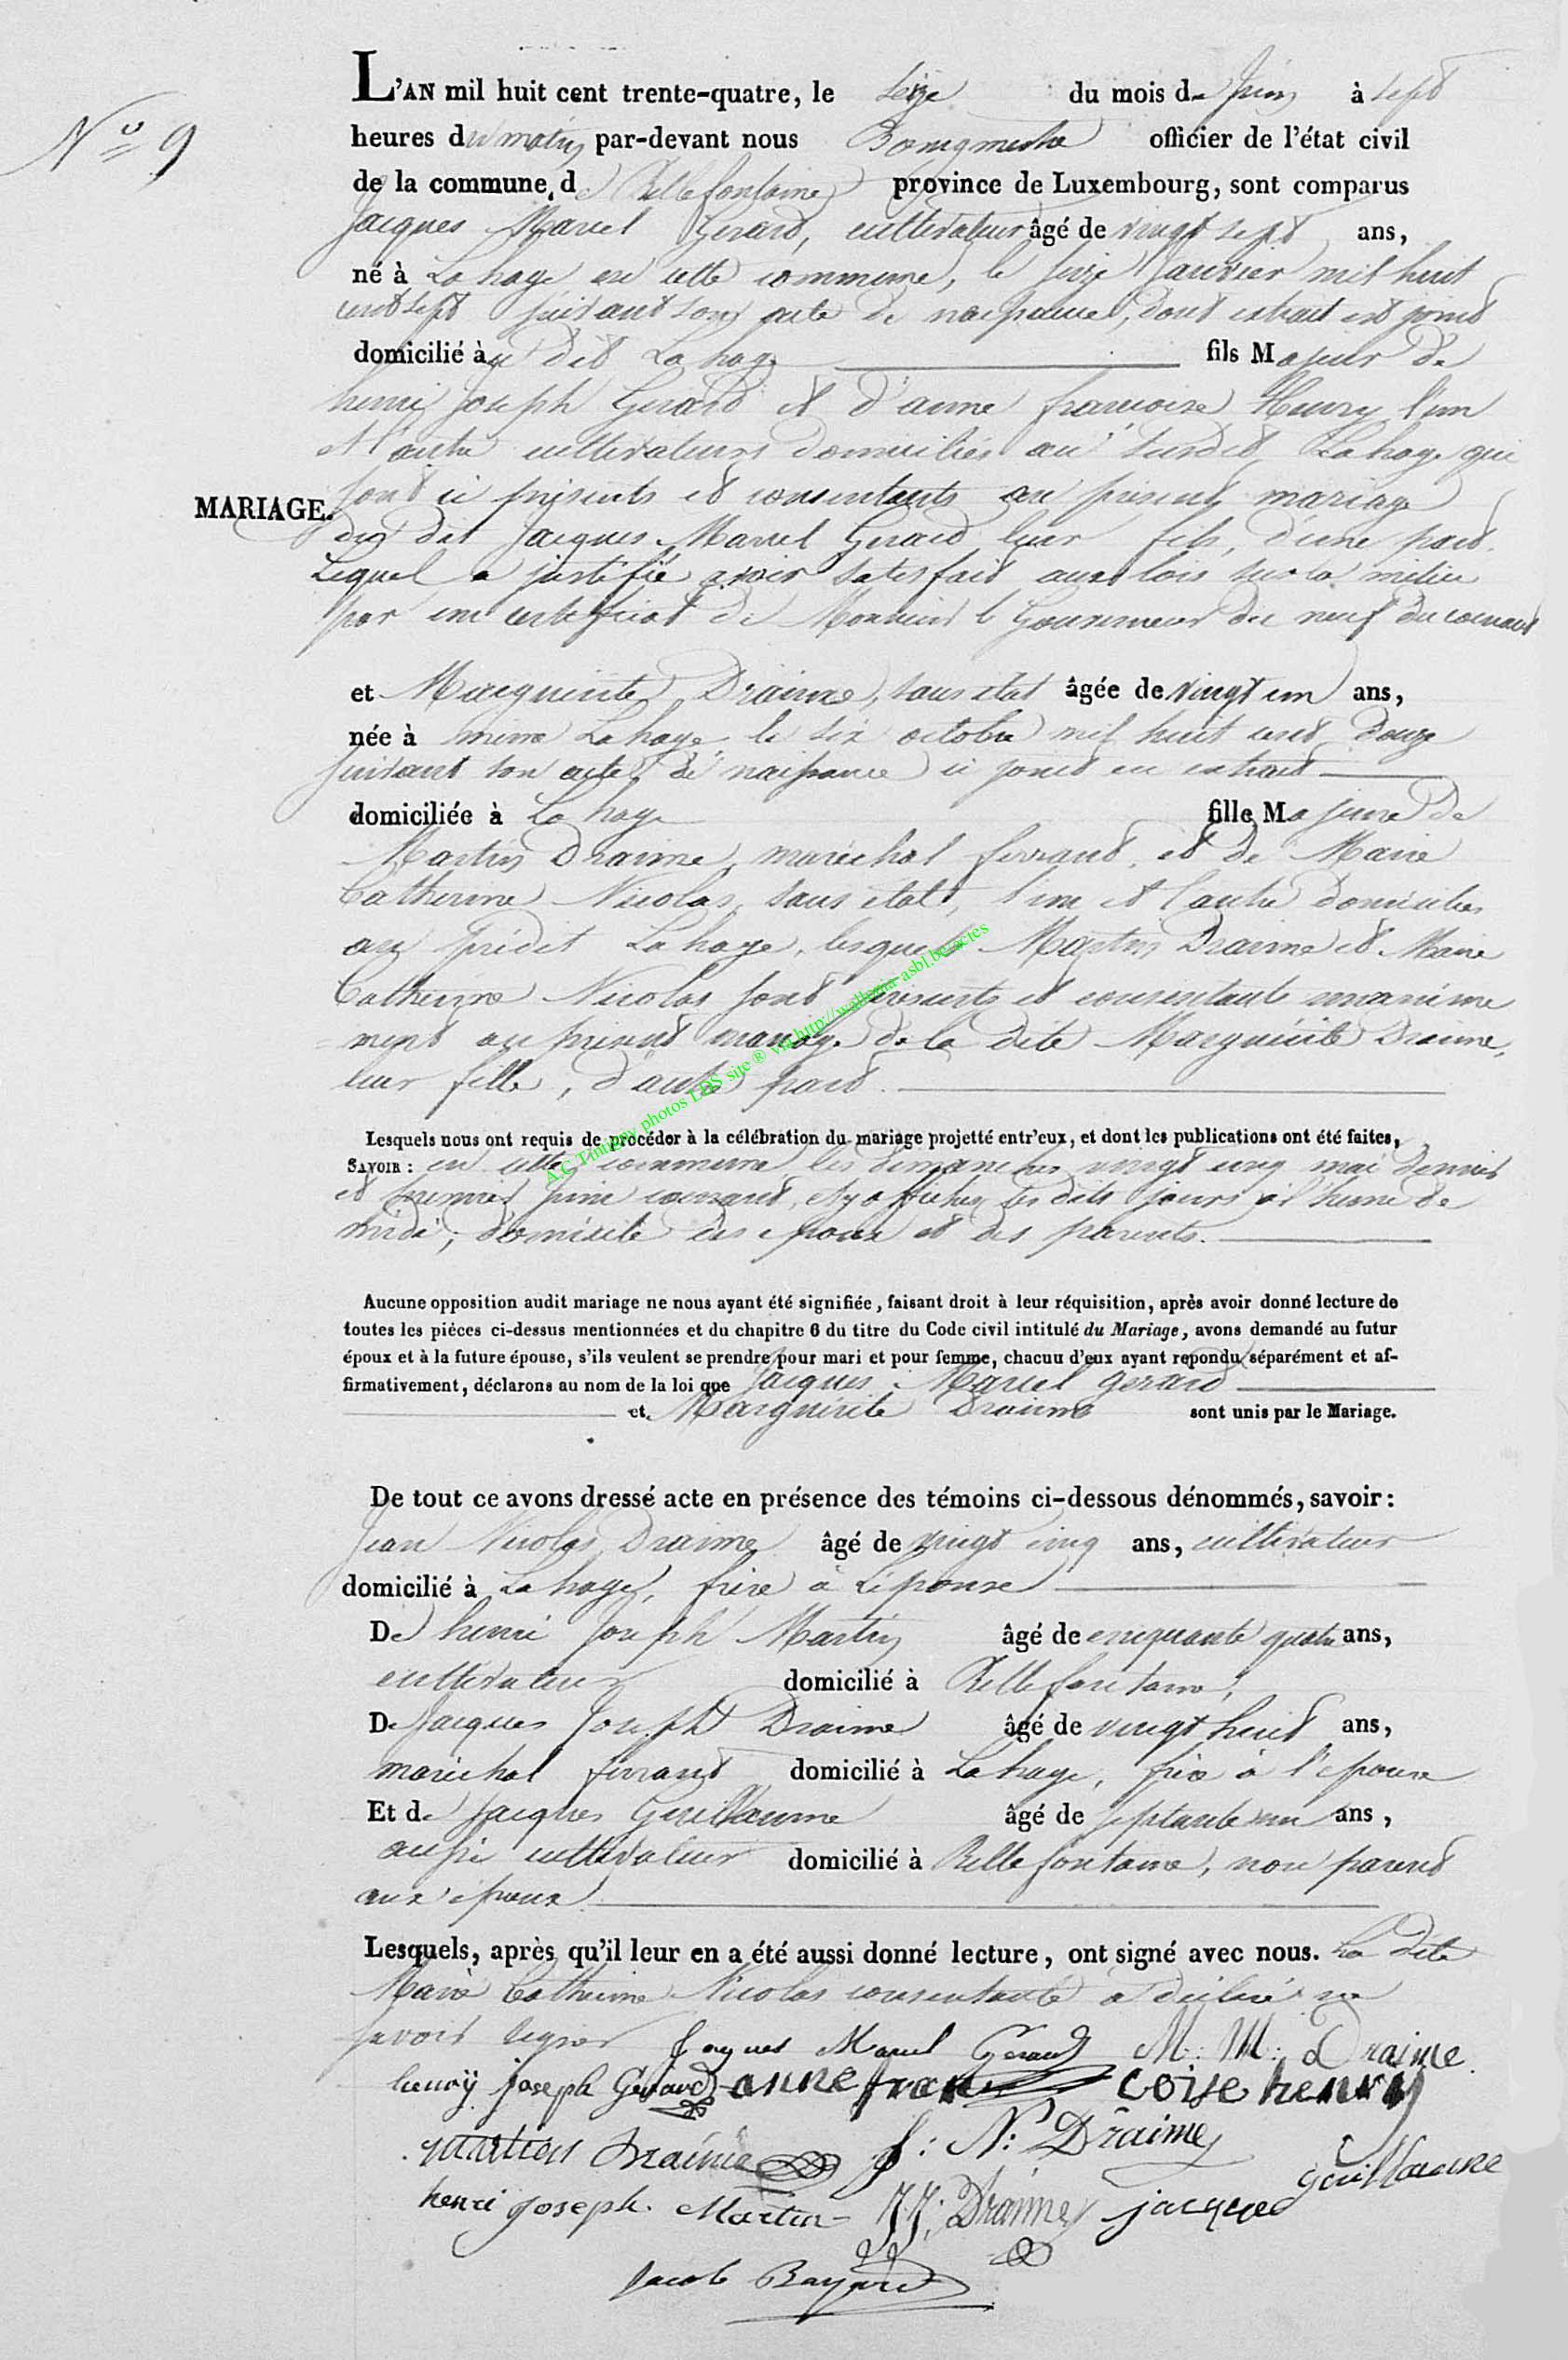 L'AN mil huit cent trente-quatre, le seize du mois de Juin à sept
N° 9
heures du matin par-devant nous Bourgmestre officier de l'état civil
de la commune de Bellefontaine province de Luxembourg, sont comparus
Jacques Marcel Gerard, cultivateur âgé de vingt sept ans,
né à Lahage en cette commune, le seize Janvier mil huit
cent sept suivant son acte de naissance, dont extrait est joint
domicilié au dit Lahage fils Majeur de
henri Joseph Gerard et d'anne francoise Henry l'un
et l'autre cultivateurs domiciliés au susdit Lahage qui
sont ici présents et consentants au présent mariage
MARIAGE.
du dit Jacques Marcel Gerard leur fils, d'une part.
Lequel a justifié avoir satisfait aux lois sur la milice
par un certificat de Monsieur le Gouverneur du neuf du courant
et Marguerite Draime, sans etat âgée de vingt un ans,
née à même Lahage, le six octobre mil huit cent douze
suivant son acte de naissance ci joint en extrait
domiciliée à Lahage fille Majeure de
Martin Draime, maréchal ferrant, et de Marie
Catherine Nicolas, sans état, l'un et l'autre domiciliés
au prédit Lahage, lesquels Martin Draime et Marie
Catherine Nicolas sont présents et consentants unanime
ment au présent mariage de la dite Marguerite Draime,
leur fille, d'autre part.
A.C Tintigny photos LDS site ® via http://wallonia-asbl.be/actes
Lesquels nous ont requis de procéder à la célébration du mariage projetté entr'eux, et dont les publications ont été faites,
SAVOIR : en cette commune les dimanches vingt cinq mai dernier
et premier juin courant, et y affichées les dits jours à l'heure de
midi, domicile des epoux et des parents.
Aucune opposition audit mariage ne nous ayant été signifiée, faisant droit à leur réquisition, après avoir donné lecture de
toutes les pièces ci-dessus mentionnées et du chapitre 6 du titre du Code civil intitulé du Mariage, avons demandé au futur
époux et à la future épouse, s'ils veulent se prendre pour mari et pour femme, chacuu d'eux ayant repondu séparément et af-
firmativement, déclarons au nom de la loi que Jacques Marcel Gerard
et Marguerite Draime sont unis par le Mariage.
De tout ce avons dressé acte en présence des témoins ci-dessous dénommés, savoir :
Jean Nicolas Draime âgé de vingt cinq ans, cultivateur
domicilié à Lahage, frère à L'épouse
De henri Joseph Martin âgé de cinquante quatre ans,
cultivateur domicilié à Bellefontaine,
De Jacques Joseph Draime âgé de vingt huit ans,
maréchal ferrant domicilié à Lahage, frère à l'epouse
Et de Jacques Guillaume âgé de septante un ans,
aussi cultivateur domicilié à Bellefontaine, non parent
aux époux.
Lesquels, après qu'il leur en a été aussi donné lecture, ont signé avec nous. La dite
Marie Catherine Nicolas consentante a déclaré ne
savoir signer Jaques Marcel Gerard M: M: Draime
henry joseph Gerard anne fran coise henry
Martin Draime J: N: Draime
henri joseph Martin J J: Draime jacque guillaume
Jacob Bayard